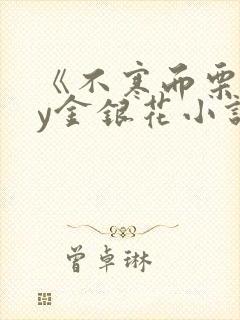 《不寒而栗
y金银花小说
曾卓琳